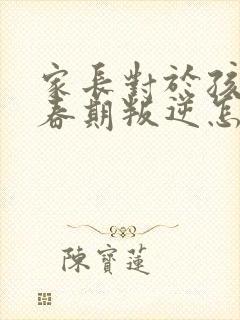 家長對於孩
春期叛逆怎
陳寶蓮